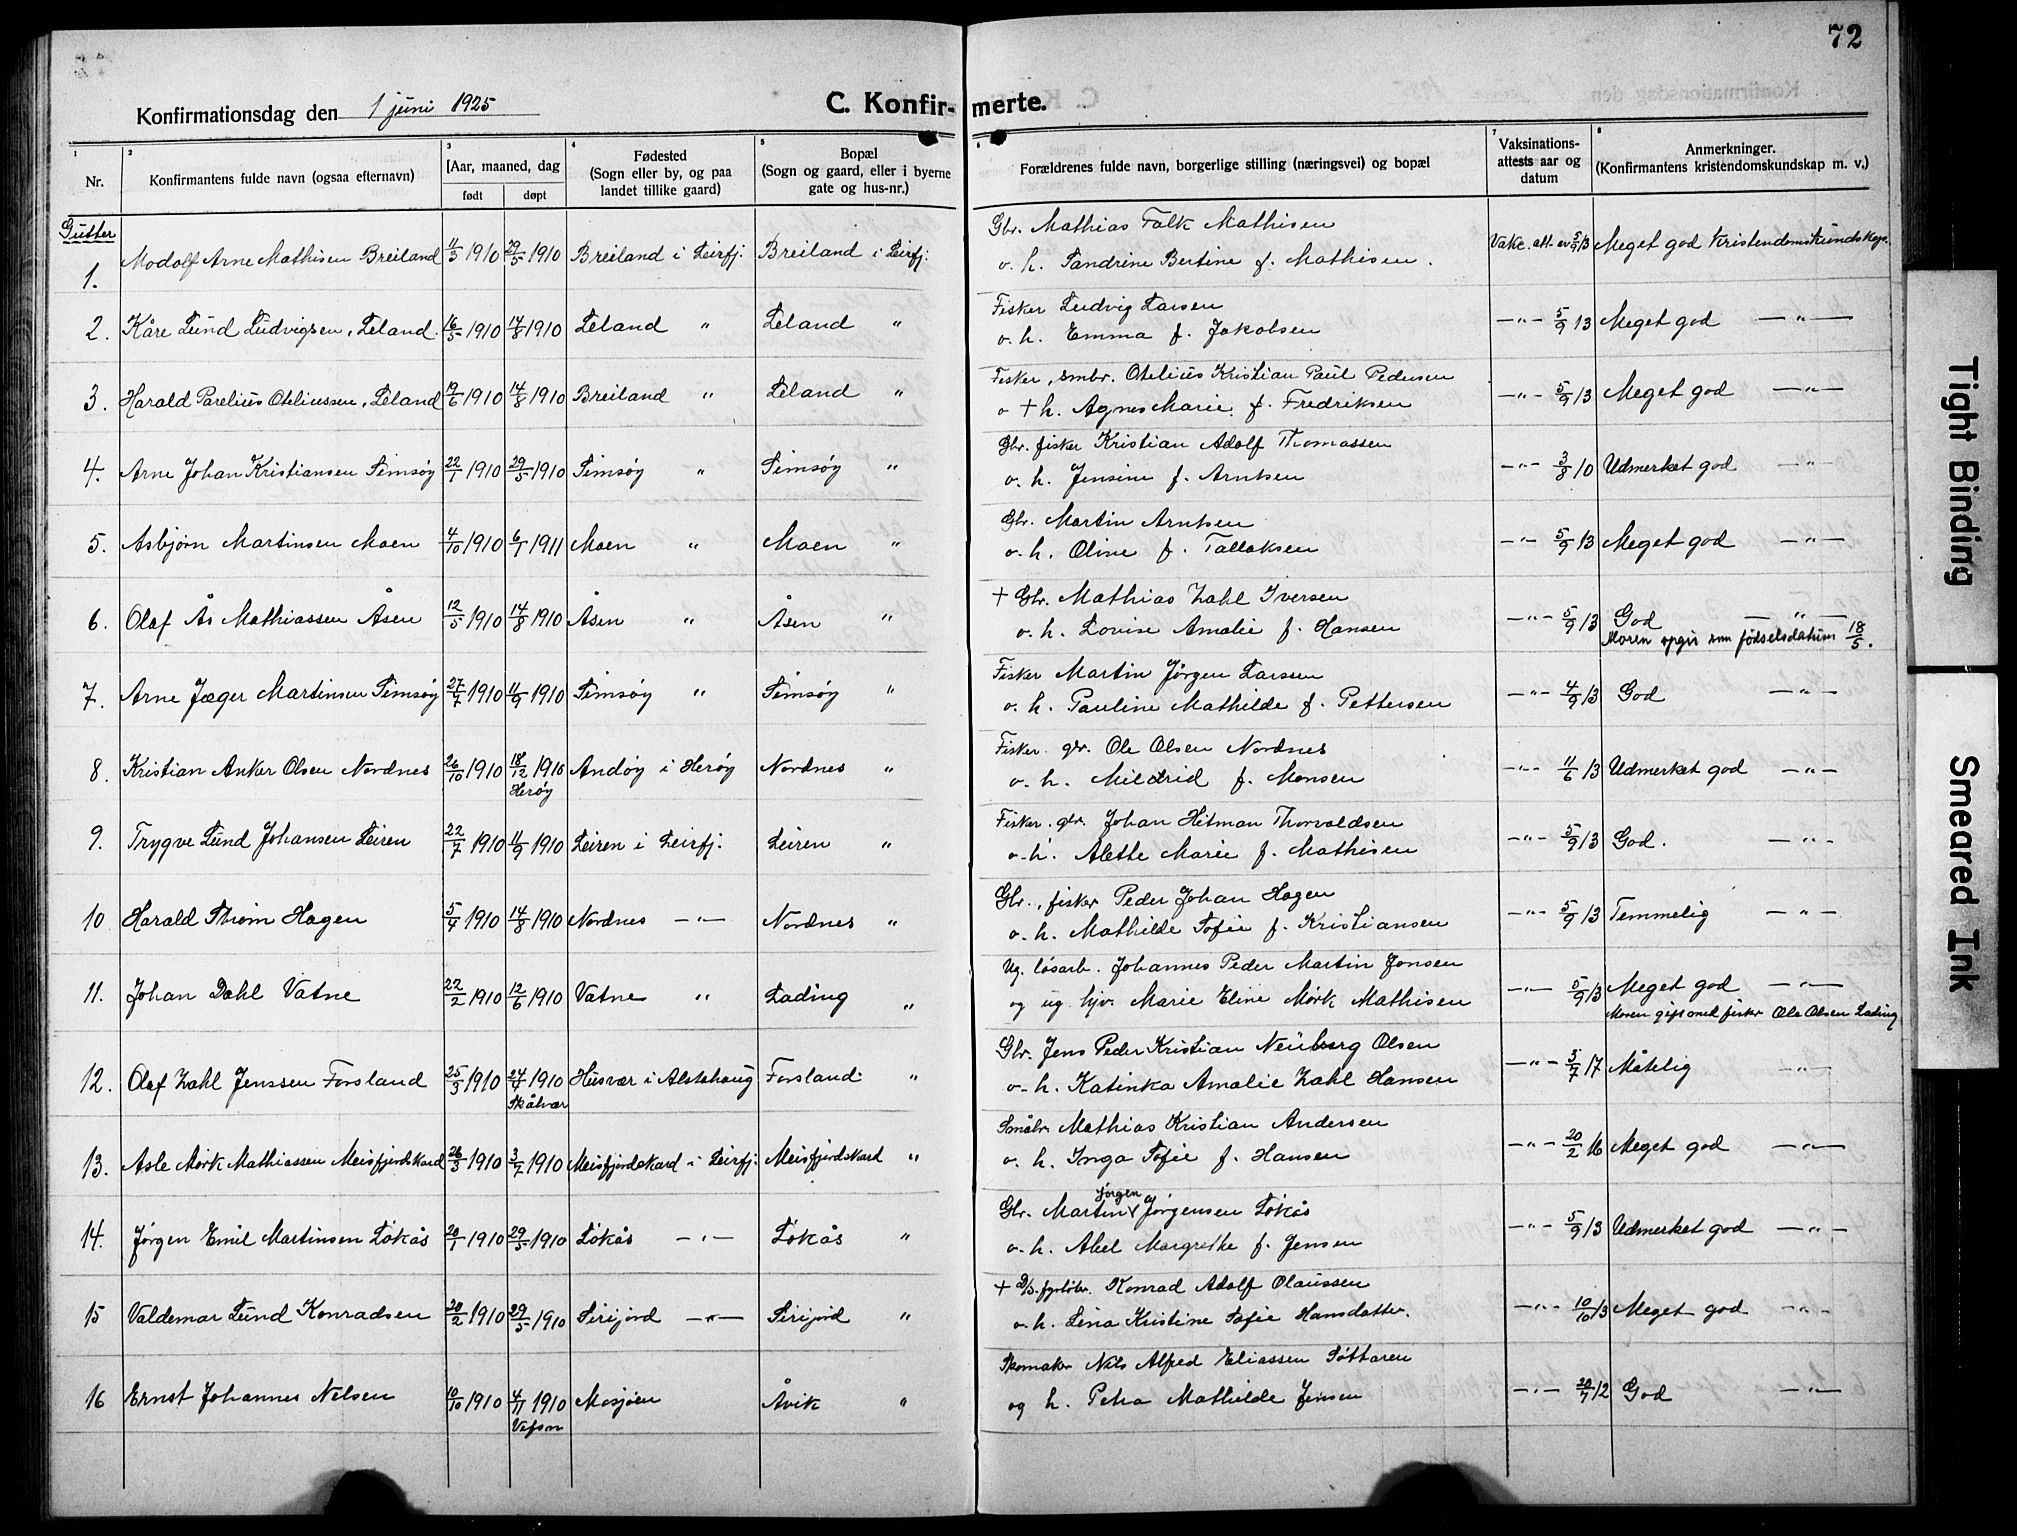 72
Konfirmationsdag den 1 juni 1925
C. Konfirmerte.
1 Nr.
2 Konfirmantens fulde navn (ogsaa efternavn)
3 [Aar, maaned, dag
født
døpt
4 Fødested
(Sogn eller by, og paa
landet tillike gaard)
5 Bopæl
(Sogn og gaard, eller i byerne
gate og hus-nr.)
6 Forældrenes fulde navn, borgerlige stilling (næringsvei) og bopæl
7 Vaksinations-
attests aar og
datum
8 Anmerkninger.
(Konfirmantens kristendomskundskap m. v.)
Gutter
1. Modolf Arne Mathisen Breiland 11/3 1910 29/5 1910 Breiland i Leirfj. Breiland i Leirfj. Gbr. Mathias Falk Mathisen
o. h. Sandrine Bertine f. Mathisen. Vakc. att. ev 5/9 13 Meget god Kristendomskundskap.
2. Kåre Lund Ludvigsen, Leland. 16/5 1910 14/8 1910 Leland " Leland " Fisker Ludvig Larsen
o. h. Emma f. Jakobsen —"— 5/9 13 Meget god —"—
3. Harald Parelius Oteliussen, Leland 19/6 1910 14/8 1910 Breiland " Leland " Fisker, smbr. Otelius Kristian Paul Pedersen
o + h. Agnes Marie f. Fredriksen —"— 5/9 13 Meget god —"—
4. Arne Johan Kristiansen Simsøy 22/1 1910 29/5 1910 Simsøy " Simsøy " Gbr. fisker Kristian Adolf Thomassen
o. h. Jensine f. Arntsen —"— 3/8 10 Udmerket god —"—
5. Asbjørn Martinsen Moen 4/10 1910 6/1 1911 Moen " Moen " Gbr. Martin Arntsen
o. h. Oline f. Tollaksen —"— 5/9 13 Meget god —"—
6. Olaf Ås Mathiassen Åsen 12/5 1910 14/8 1910 Åsen " Åsen " + Gbr. Mathias Zahl Iversen
o. h. Lovise Amalie f. Hansen —"— 5/9 13 God —"—
Moren opgir som fødselsdatum 18/5.
7. Arne Jæger Martinsen Simsøy 27/7 1910 11/9 1910 Simsøy " Simsøy " Fisker Martin Jørgen Larsen
o. h. Pauline Mathilde f. Pettersen —"— 4/9 13 God —"—
8. Kristian Anker Olsen Nordnes 26/10 1910 18/12 1910 Herøy Andøy i Herøy Nordnes " Fisker gbr. Ole Olsen Nordnes
o. h. Mildrid f. Monsen —"— 11/6 13 Udmerket god —"—
9. Trygve Lund Johansen Leiren 22/7 1910 11/9 1910 Leiren i Leirfj. Leiren " Fisker. gbr. Johan Hitman Thorvaldsen
o. h. Alette Marie f. Mathisen —"— 5/9 13 God. —"—
10 Harald Strøm Hagen 5/4 1910 14/8 1910 Nordnes —"— Nordnes " Gbr., fisker Peder Johan Hagen
o. h. Mathilde Sofie f. Kristiansen —"— 5/9 13 Temmelig —"—
11. Johan Dahl Vatne 22/2 1910 12/6 1910 Vatne " Lading " Ug. løsarb. Johannes Peder Martin Jonsen
og ug. hjv. Marie Eline Mørk Mathisen —"— 5/9 13 Meget god —"—
Moren gift med fisker Ole Olsen Lading
12. Olaf Zahl Jenssen Forsland 25/3 1910 24/4 1910 Skålvær Husvær i Alstahaug Forsland. " Gbr. Jens Peder Kristian Neuberg Olsen
o. h. Katinka Amalie Zahl Hansen —"— 3/7 17 Måtelig —"—
13. Asle Mørk Mathiassen Meisfjordskard 26/3 1910 3/7 1910 Meisfjordskard i Leirfj. Meisfjordskard " Småbr. Mathias Kristian Andersen
o. h. Inga Sofie f. Hansen —"— 20/2 16 Meget god —"—
14. Jørgen Emil Martinsen Løkås 20/1 1910 29/5 1910 Løkås —"— Løkås " Gbr. Martin Jørgen Jørgensen Løkås
o. h. Abel Margrethe f. Jensen —"— 5/9 13 Udmerket god —"—
15 Valdemar Lund Konradsen 20/2 1910 29/5 1910 Sirijord —"— Sirijord " + D/s. fyrbøter Konrad Adolf Olaussen
o. h. Lina Kristine Sofie Hansdatter. —"— 10/10 13 Meget god —"—
16 Ernst Johannes Nelsen 10/10 1910 4/11 1910 Vefsn Mosjøen Åvik " Skomaker Nils Alfred Eliassen Søttaren
og h. Petra Mathilde Jensen —"— 20/7 12 God —"—
Tight Binding
Smeared Ink